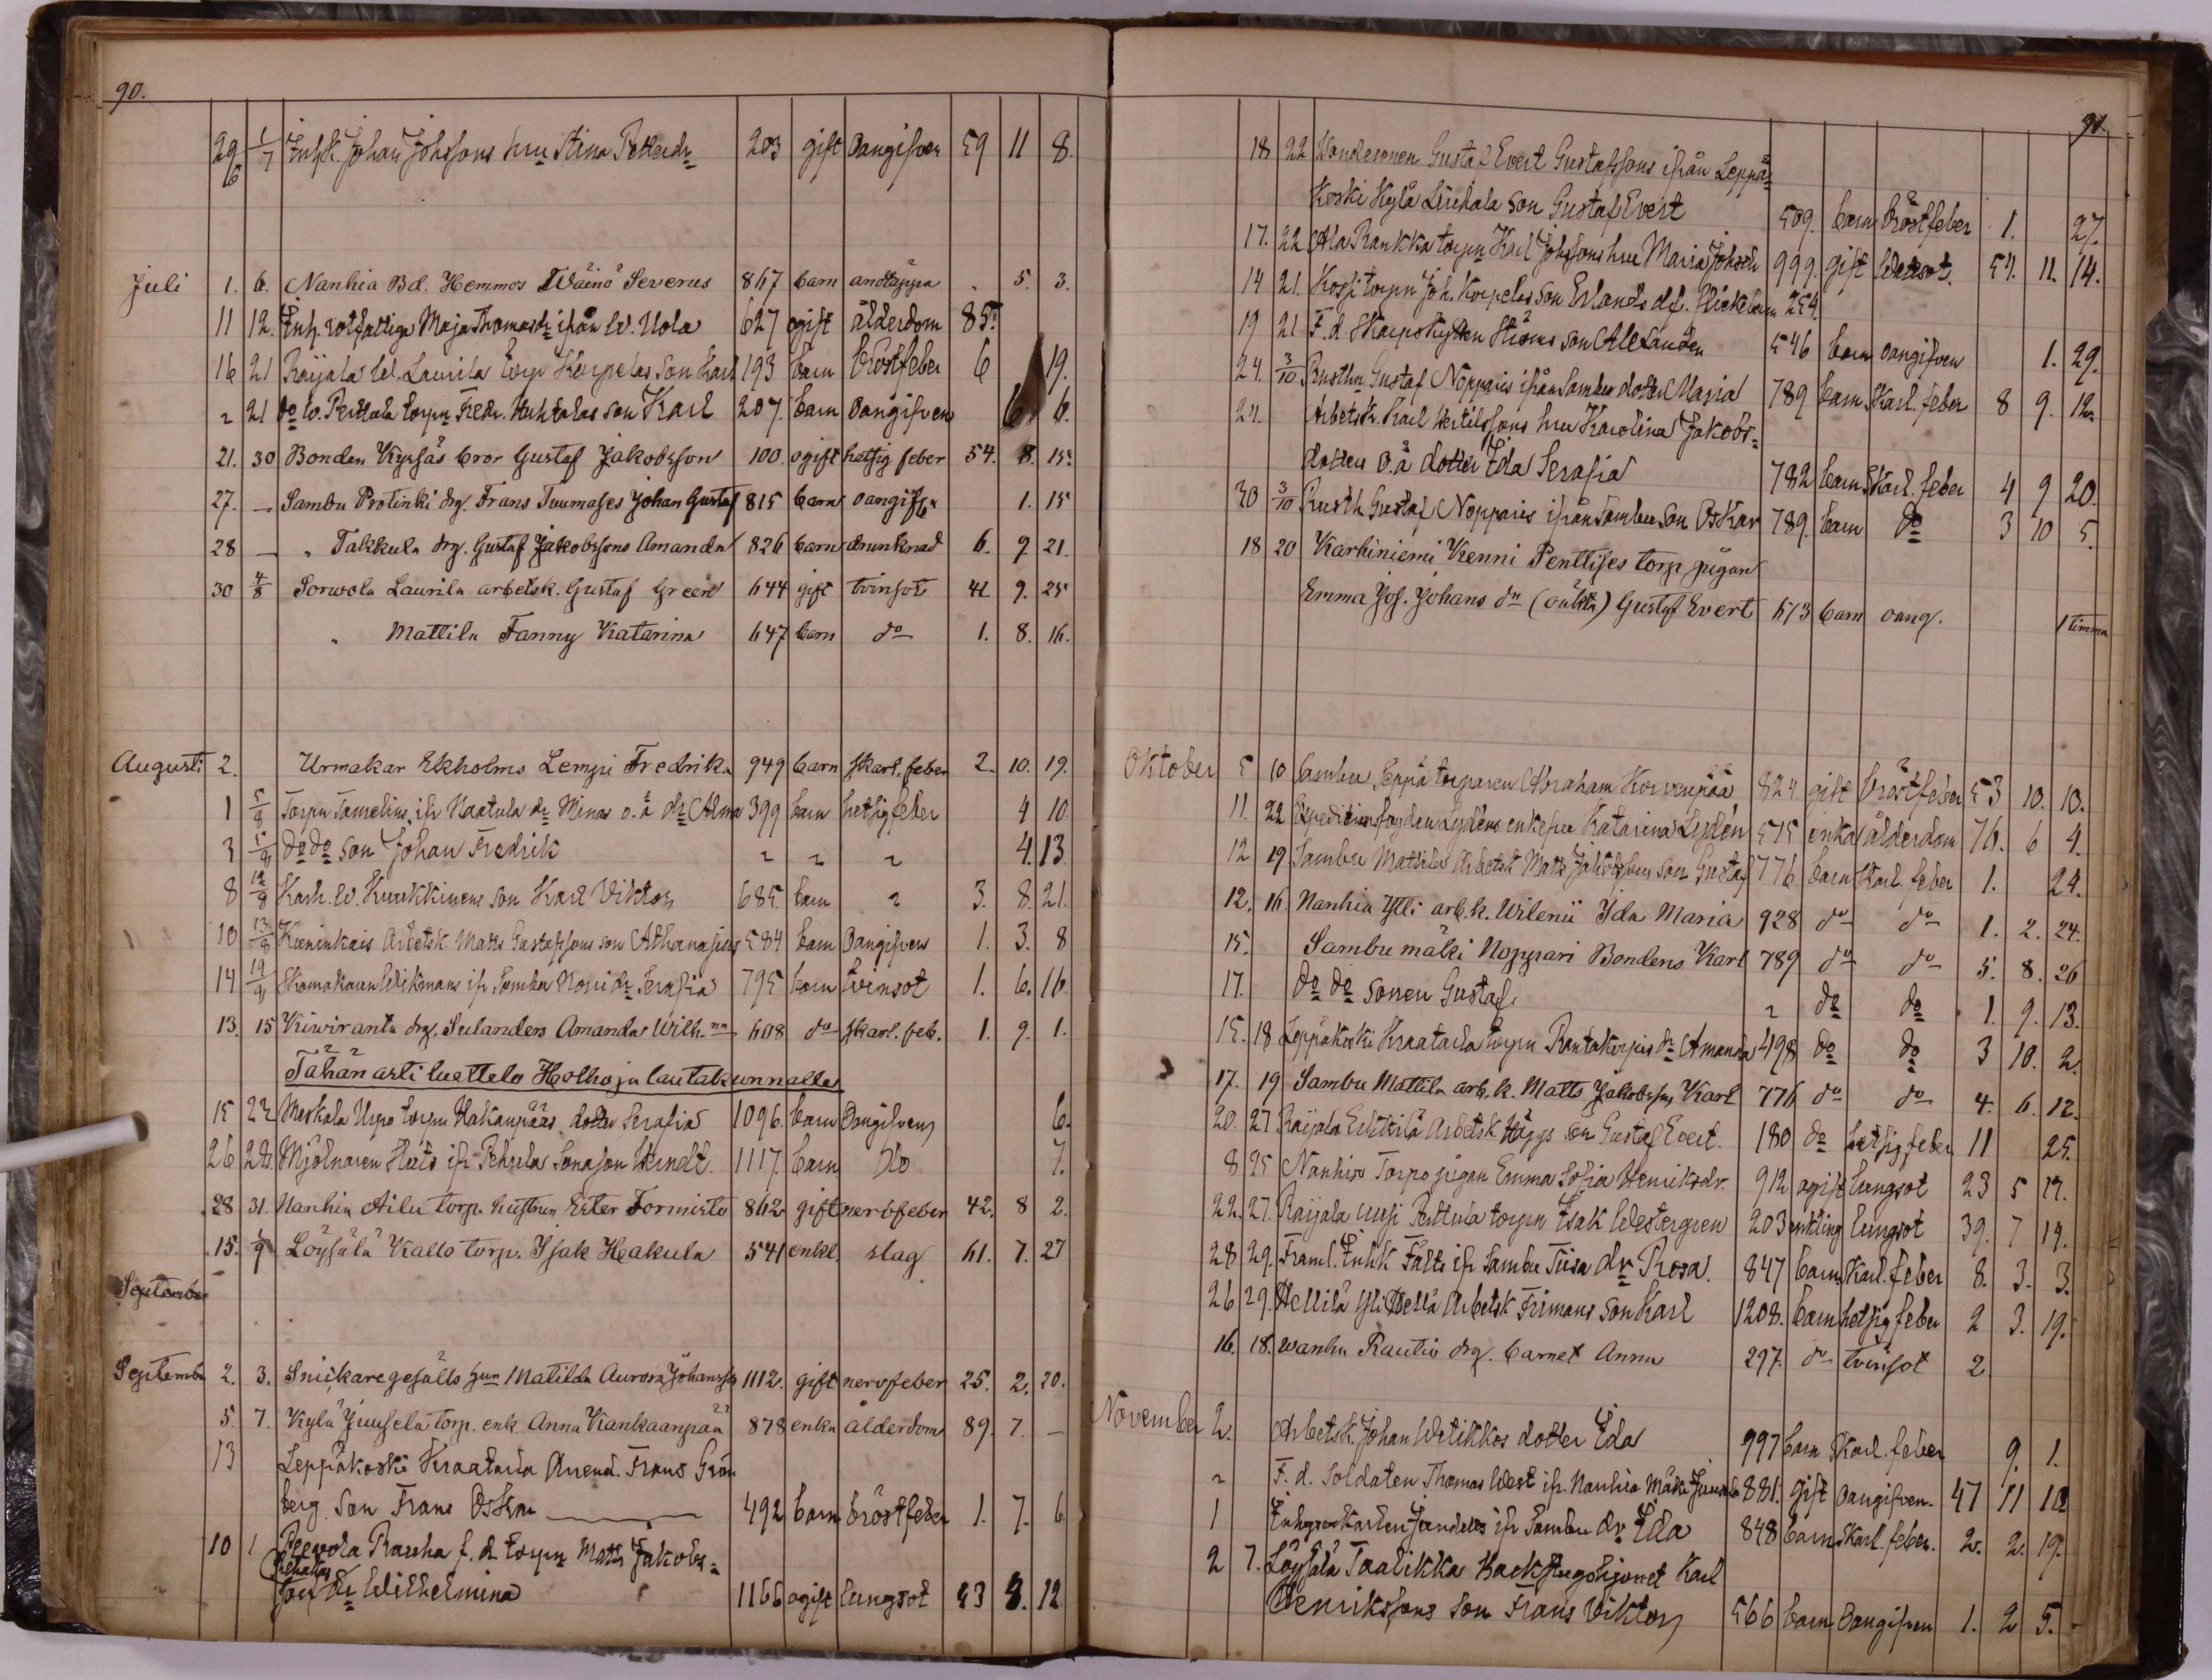 90.
29/6 1/7 Inhk. Johan Johssons hru Stina Petterdr 203 gift oangifven 59 11 8.
Juli 1. 6. Nanhia Bd. Hemmos Wäinö Severus 867 barn andtäppa 5. 3.
11 12. Inh. rotfattiga Maja Thomasdr ifrån W. Uola 627 ogift ålderdom 85.
16 21 Raijala W. Laurila torp Korpelas son Karl 193 barn bröstfeber 6 19.
" 21 do W. Perttula torpn Fredr. Huhtalas son Karl 207. barn oangifven 6 6.
21. 30 Bonden Kyrsäs bror Gustaf Jakobsson 100. ogift hetsig feber 54. 8. 15.
27. — Sambu Protinki drg. Frans Tuumases Johan Gustaf 815 barn oangifv. 1. 15
28 — " Takkula drg. Gustaf Jakobssons Amanda 826 barn drunknad 6. 9. 21.
30 4/8 Sorwola Laurila arbetsk. Gustaf Green 644 gift tvinsot 41 9. 25
" Mattila Fanny Katarina 647 barn do 1. 8. 16.
Augusti 2. Urmakar Ekholms Lempi Fredrika 949 barn skarl. feber 2. 10. 19.
1 5/8 Torpn Tamelins ifr Naatula dr Minas o. ä dr Alma 399 barn hetsig feber 4 10
3 5/8 do do son Johan Fredrik " " " 4. 13
8 12/8 Kark. W. Kurkkinens son Karl Viktor 685. barn " 3. 8. 21.
10 13/8 Kreninkais Arbetsk. Matts Gustafssons son Athanasius 584 barn oangifven 1. 3. 8
14 19/8 Skomakaren Wikmans ifr Sambu Nori dr Serafia 795 barn tvinsot 1. 6. 16
13. 15 Kiwiranta drg. Sulanders Amanda Wilh.na 608 do skarl. feb. 1. 9. 1.
Tähän asti luettelo Holhoja lautakunnalle
15 22 Meskala Uspo torpn Hakanpääs dotter Serafia 1096. barn oangifven 6.
26 28. Mjölnaren Heets ifr Pehula Sonason Werndt 1117. barn do 7.
28 31. Nanhia Ailu torp. hustrun Ester Tormisto 862 gift nervfeber 42. 8 2.
15. 1/9 Löysälä Kallo torp. Isak Heakula 541 enkl. slag 61. 7. 27
September
September 2. 3. Snickaregesälls hun Matilda Aurora Johanssn 1112. gift nervfeber 25. 2. 20.
5. 7. Kylä Juusela torp. enk. Anna Kankaanpää 878 enka ålderdom 89. 7. —
13 Leppäkoski Kraatarla Arrend. Frans Grön
berg son Frans Oskar 492 barn bröstfeber 1. 7. 6
10 1 Peevola Rauha f. d. torpn Matts Jakobs=
son dr Wilhelmina 1166 ogift lungsot 43 8. 12
91.
18 22 Bondesonen Gustaf Evert Gustafssons ifrån Leppä=
koski Kylä Liuhala son Gustaf Evert 509. barn bröstfeber 1. 27.
17. 22 Ala Rankka torpn Karl Johssons hru Maria Johsdr 999. gift Wattsot. 54. 11. 14.
14 21. Kossi torpn Joh. Korpelas son Erlands df. flickbarn 254.
19 21 F. d. Skarpskytten Ströms son Alexander 546 barn oangifven 1. 29.
24. 3/10 Rusthn Gustaf Nopparis ifrån Sambu dotter Maria 789 barn Skarl. feber 8 9. 12.
24. Arbetsk. Karl Bertilssons hru Karolina Jakobs=
dotters o.ä dotter Ida Serafia 782 barn Skarl. feber 4 9 20.
30 3/10 Rusth Gustaf Nopparis ifrån Sambu son Oskar 789. barn do 3 10 5.
18 20 Karhiniemi Kenni Penttises torp pigan
Emma Jos. Johans dn (oäkta) Gustaf Evert 673 barn oang. 1 timma
Oktober 5 10 Sambu Seppä torparen Abraham Korvenpää 824. gift bröstfeber 53 10. 10.
11. 22 Expeditionsfogden Lydéns enkefru Katarina Lydén 575 enka ålderdom 76. 6 4.
12 19 Sambu Mattila Arbetsk Matts Jakobssons son Gustaf 776 barn Skarl. feber 1. 24.
12. 16. Nanhia Ylli arb.k. Wilenii Ida Maria 928 do do 1. 2. 24.
15. Sambu mäki Noppari Bondens Karl 789 do do 5. 8. 26
17. do do sonen Gustaf " do do 1. 9. 13.
15. 18 Leppäkoski Kraatarla torpn Rantakorpis dr Amanda 498 do do 3 10. 2.
17. 19 Sambu Mattila arb.k. Matts Jakobssns Karl 776 do do 4. 6. 12.
20. 27. Raijala Erkkilä Arbetsk. Häggs son Gustaf Evert. 180 do hetsig feber 11 25.
8 25 Nanhia Torpo pigan Emma Sofia Henriksdr. 912 ogift lungsot 23 5 17.
22. 27. Raijala uusi Perttula torpn Isak Westergren 203 enkling lungsot 39. 7 14.
28 29. Framl. Inhk Fälts ifr Sambu Tiisa dr Rosa. 847 barn Skarl. feber 8. 3. 3.
26 29. Hellilä Yli Hellä Arbetsk Frimans son Karl 1208. barn hetsig feber 2 3. 19.
16. 18. Wanha Rautio drg. barnet Anna 297. do tvinsot 2.
November 2. Arbetsk. Johan Wetikkos dotter Ida 997 barn Skarl. feber 9. 1.
" F. d. soldaten Thomas West ifr. Nanhia Mäki Juusela 881. gift oangifven. 47 11 18
1 Inhysekarlen Jandells ifr Sambu dr Ida 848 barn Skarl. feber. 2. 2. 19.
2 7. Löysälä Taalikka Backstugohjonet Karl
Henrikssons son Frans Viktor 566 barn oangifven 1. 2 5.